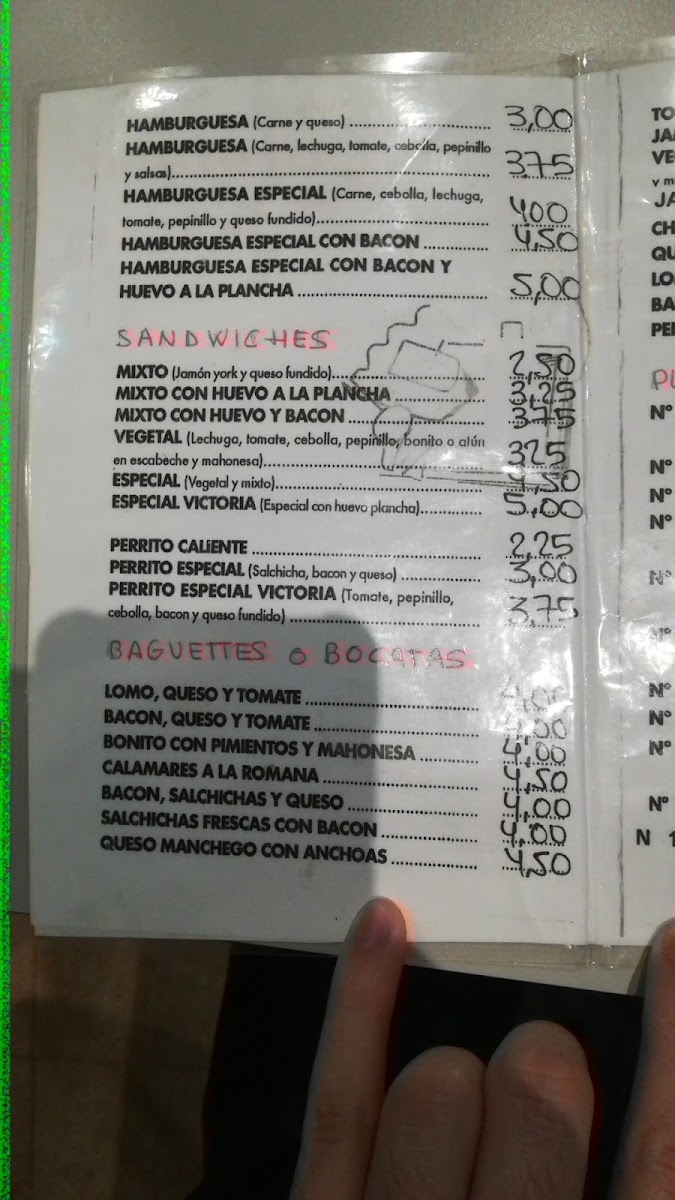 HAMBURGUESA (Carne y queso) .......... 3,00
HAMBURGUESA (Carne, lechuga, tomate, cebolla, pepinillo
y salsas).......... 3,75
HAMBURGUESA ESPECIAL (Carne, cebolla, lechuga,
tomate, pepinillo y queso fundido).......... 4,00
HAMBURGUESA ESPECIAL CON BACON .......... 4,50
HAMBURGUESA ESPECIAL CON BACON Y
HUEVO A LA PLANCHA .......... 5,00
SANDWICHES
MIXTO (Jamón york y queso fundido).......... 2,50
MIXTO CON HUEVO A LA PLANCHA .......... 3,25
MIXTO CON HUEVO Y BACON .......... 3,75
VEGETAL (Lechuga, tomate, cebolla, pepinillo, bonito o atún
en escabeche y mahonesa).......... 3,25
ESPECIAL (Vegetal y mixto).......... 4,50
ESPECIAL VICTORIA (Especial con huevo plancha).......... 5,00
PERRITO CALIENTE .......... 2,25
PERRITO ESPECIAL (Salchicha, bacon y queso) .......... 3,00
PERRITO ESPECIAL VICTORIA (Tomate, pepinillo,
cebolla, bacon y queso fundido) .......... 3,75
BAGUETTES o BOCATAS
LOMO, QUESO Y TOMATE .......... 4,00
BACON, QUESO Y TOMATE .......... 4,00
BONITO CON PIMIENTOS Y MAHONESA .......... 4,00
CALAMARES A LA ROMANA .......... 4,50
BACON, SALCHICHAS Y QUESO .......... 4,00
SALCHICHAS FRESCAS CON BACON .......... 4,00
QUESO MANCHEGO CON ANCHOAS .......... 4,50
TO
JA
VE
y m
JA
CH
QU
LO
BA
PE
Nº
Nº
Nº
Nº
Nº
Nº
Nº
Nº
Nº
Nº
N 1